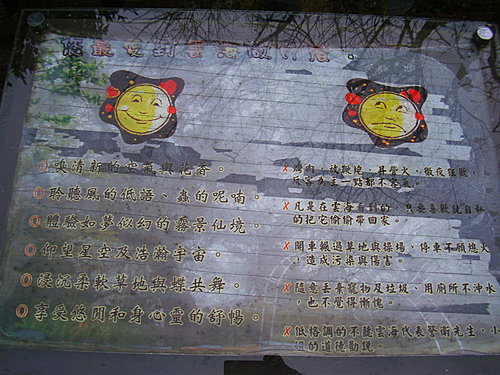 您最後到雲海做什後？
O 嗅清新的空氣與花香。
O 聆聽風的低語、蟲的呢喃。
O 體驗如夢似幻的霧景仙境。
O 仰望星空及浩瀚宇宙。
O 浸沉柔軟草地與蝶共舞。
O 享受悠閒和身心靈的舒暢。
X 烤肉、放鞭炮、昇營火、徹夜狂歡
一點都不客氣。
X 凡是在雲海看到的，只要喜歡就自私
的把它偷偷帶回家。
X 開車輾過草地與操場，停車不願熄火
，造成污染與傷害。
X 隨意丟棄寵物及垃圾，用廁所不沖水
，也不覺得慚愧。
X 低格調的不聽雲海代表警衛先生、小
姐的道德勸說。